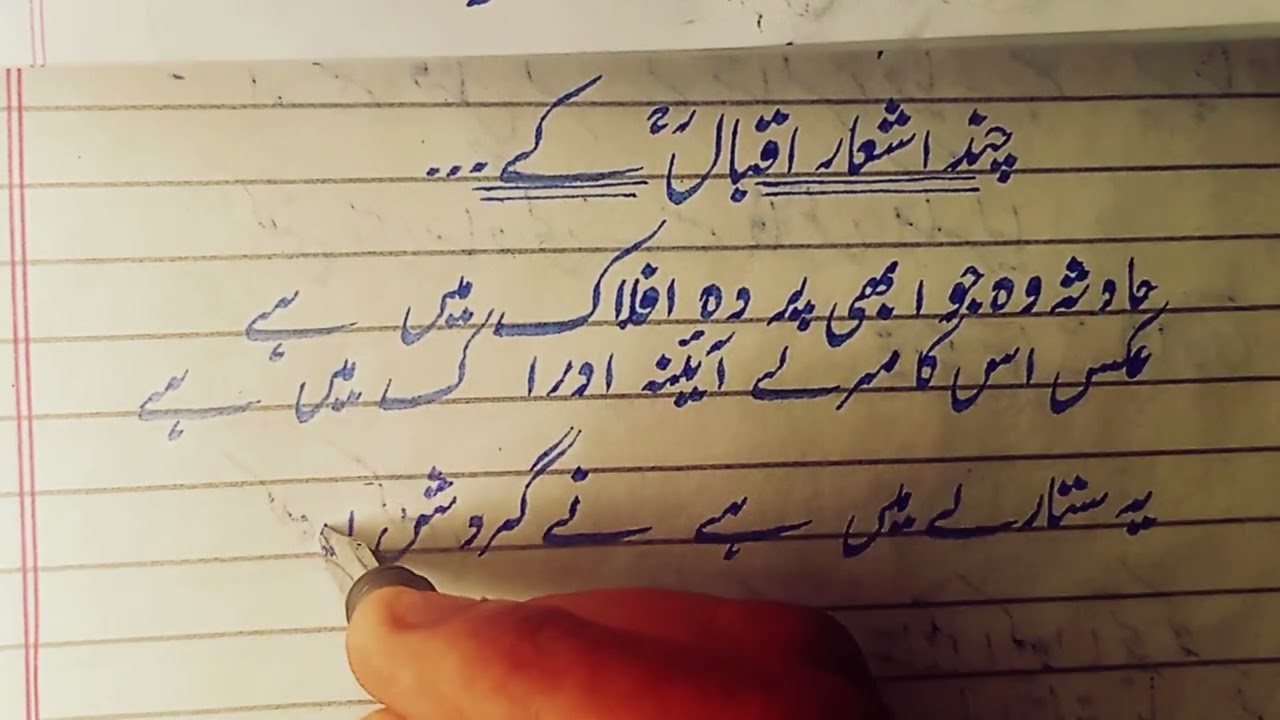 چند اشعار اقبالؒ کے...
حادثہ وہ جو ابھی پردہ افلاک میں ہے
عکس اس کا مرے آئینہ ادراک میں ہے
یہ ستارے میں ہے نے گردش